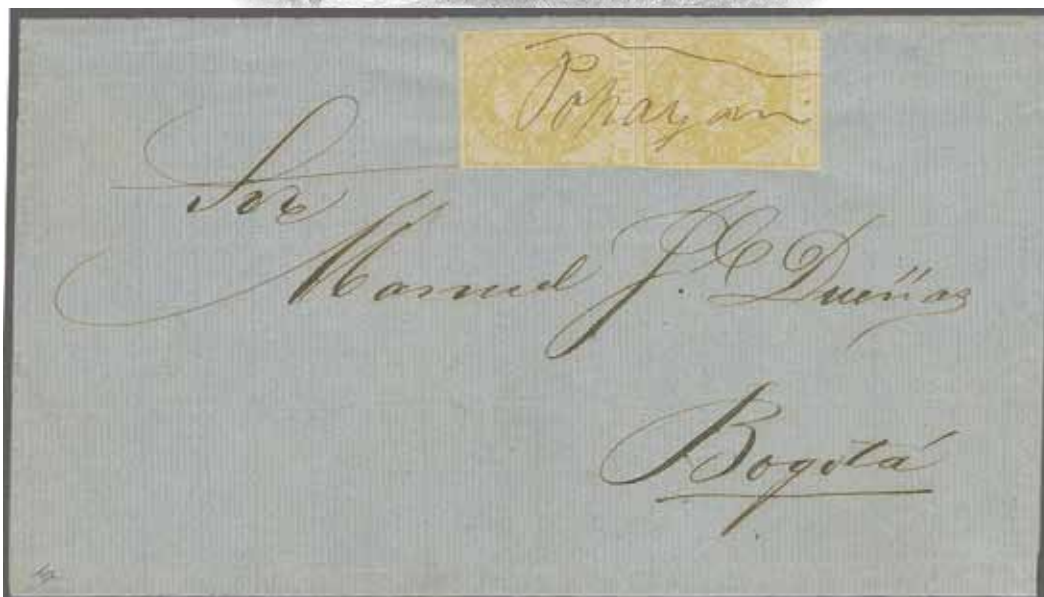 Popayan
Sor
Manuel J. C. Dueñas
Bogotá